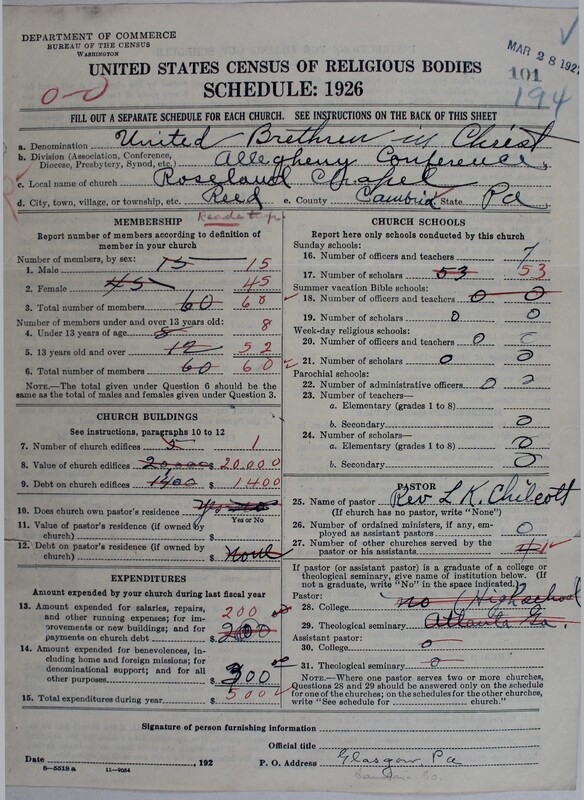 DEPARTMENT OF COMMERCE
BUREAU OF THE CENSUS
WASHINGTON
MAR 28 192
UNITED STATES CENSUS OF RELIGIOUS BODIES
101
SCHEDULE: 1926
194
0-0
FILL OUT A SEPARATE SCHEDULE FOR EACH CHURCH. SEE INSTRUCTIONS ON THE BACK OF THIS SHEET
a. Denomination United Brethren in Christ
b. Division (Association, Conference, Diocese, Presbytery, Synod, etc.) Allegheny Conference
c. Local name of church Roseland Chapel
d. City, town, village, or township, etc. Reed e. County Cambria State Pa
Reade tp.
MEMBERSHIP
Report number of members according to definition of
member in your church
Number of members, by sex:
1. Male 15 15
2. Female 45 45
3. Total number of members 60 60
Number of members under and over 13 years old:
4. Under 13 years of age 8 8
5. 13 years old and over 12 52
6. Total number of members 60 60
NOTE.—The total given under Question 6 should be the
same as the total of males and females given under Question 3.
CHURCH BUILDINGS
See instructions, paragraphs 10 to 12
7. Number of church edifices 1
8. Value of church edifices 20,000 $ 20,000
9. Debt on church edifices 1400 $ 1400
10. Does church own pastor's residence
Yes or No
11. Value of pastor's residence (if owned by
church) $
12. Debt on pastor's residence (if owned by
church) $ None
EXPENDITURES
Amount expended by your church during last fiscal year
13. Amount expended for salaries, repairs,
and other running expenses; for im-
provements or new buildings; and for
payments on church debt $ 200
14. Amount expended for benevolences,
including home and foreign missions; for
denominational support; and for all
other purposes $ 300
15. Total expenditures during year $ 500
CHURCH SCHOOLS
Report here only schools conducted by this church
Sunday schools:
16. Number of officers and teachers 7
17. Number of scholars 53 53
Summer vacation Bible schools:
18. Number of officers and teachers 0 0
19. Number of scholars 0 0
Week-day religious schools:
20. Number of officers and teachers 0 0
21. Number of scholars 0 0
Parochial schools:
22. Number of administrative officers 0
23. Number of teachers—
a. Elementary (grades 1 to 8)
b. Secondary 0
24. Number of scholars—
a. Elementary (grades 1 to 8) 0
b. Secondary 0
PASTOR
25. Name of pastor Rev L. K. Chilcott
(If church has no pastor, write "None")
26. Number of ordained ministers, if any, em-
ployed as assistant pastors 0
27. Number of other churches served by the
pastor or his assistants
If pastor (or assistant pastor) is a graduate of a college or
theological seminary, give name of institution below. (If
not a graduate, write "No" in the space indicated.)
Pastor:
28. College no Highschool
29. Theological seminary Atlanta Ga.
Assistant pastor:
30. College 0
31. Theological seminary 0
NOTE.—Where one pastor serves two or more churches,
Questions 28 and 29 should be answered only on the schedule
for one of the churches; on the schedules for the other churches,
write "See schedule for church."
Signature of person furnishing information
Official title
Date , 192 P. O. Address Glasgow, Pa
Cambria Co.
8-5518 a 11-9054